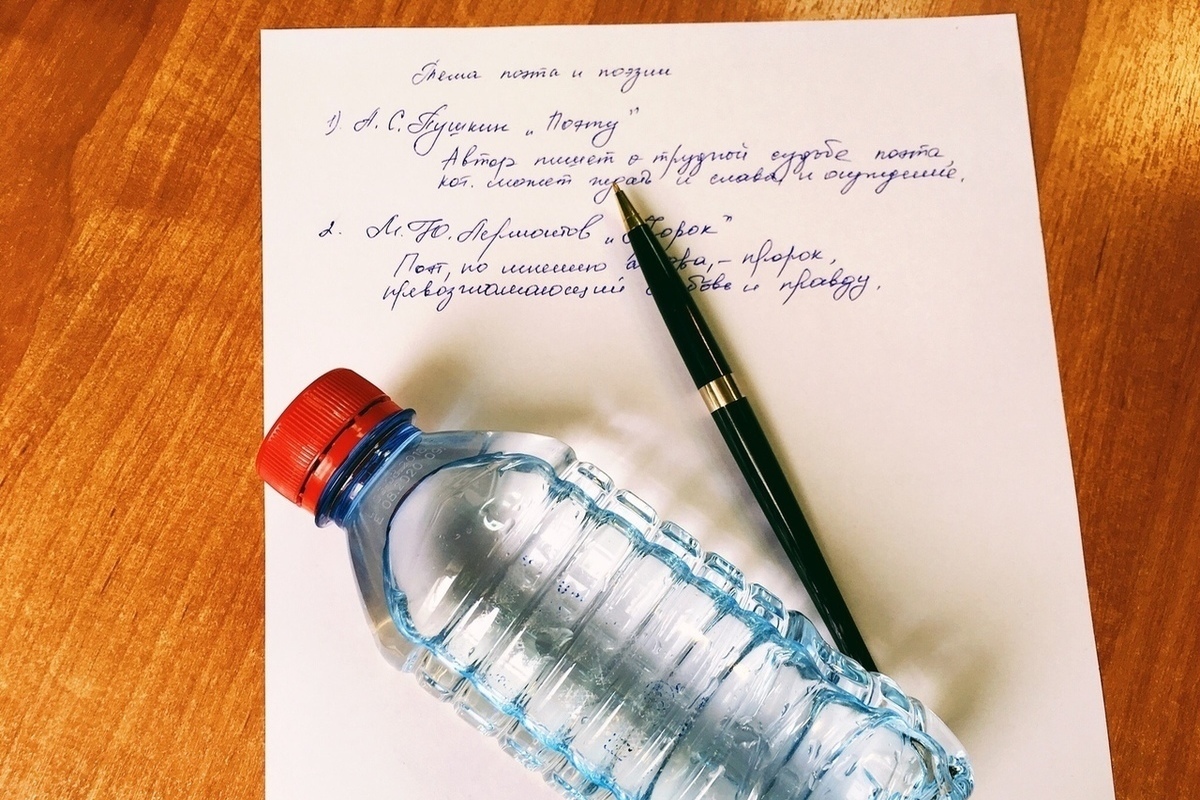 Тема поэта и поэзии
1). А. С. Пушкин „Поэту”
Автор пишет о трудной судьбе поэта,
кот. может ждать и слава, и осуждение.
2. М. Ю. Лермонтов „Пророк”
Поэт, по мнению автора, – пророк,
провозглашающий любовь и правду.